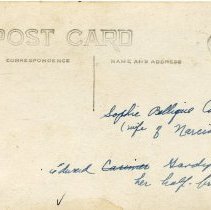 POST CARD
CORRESPONDENCE
NAME AND ADDRESS
Sophie Bellique
(wife of Narciss
Edward Casimer Gardip
her half-b